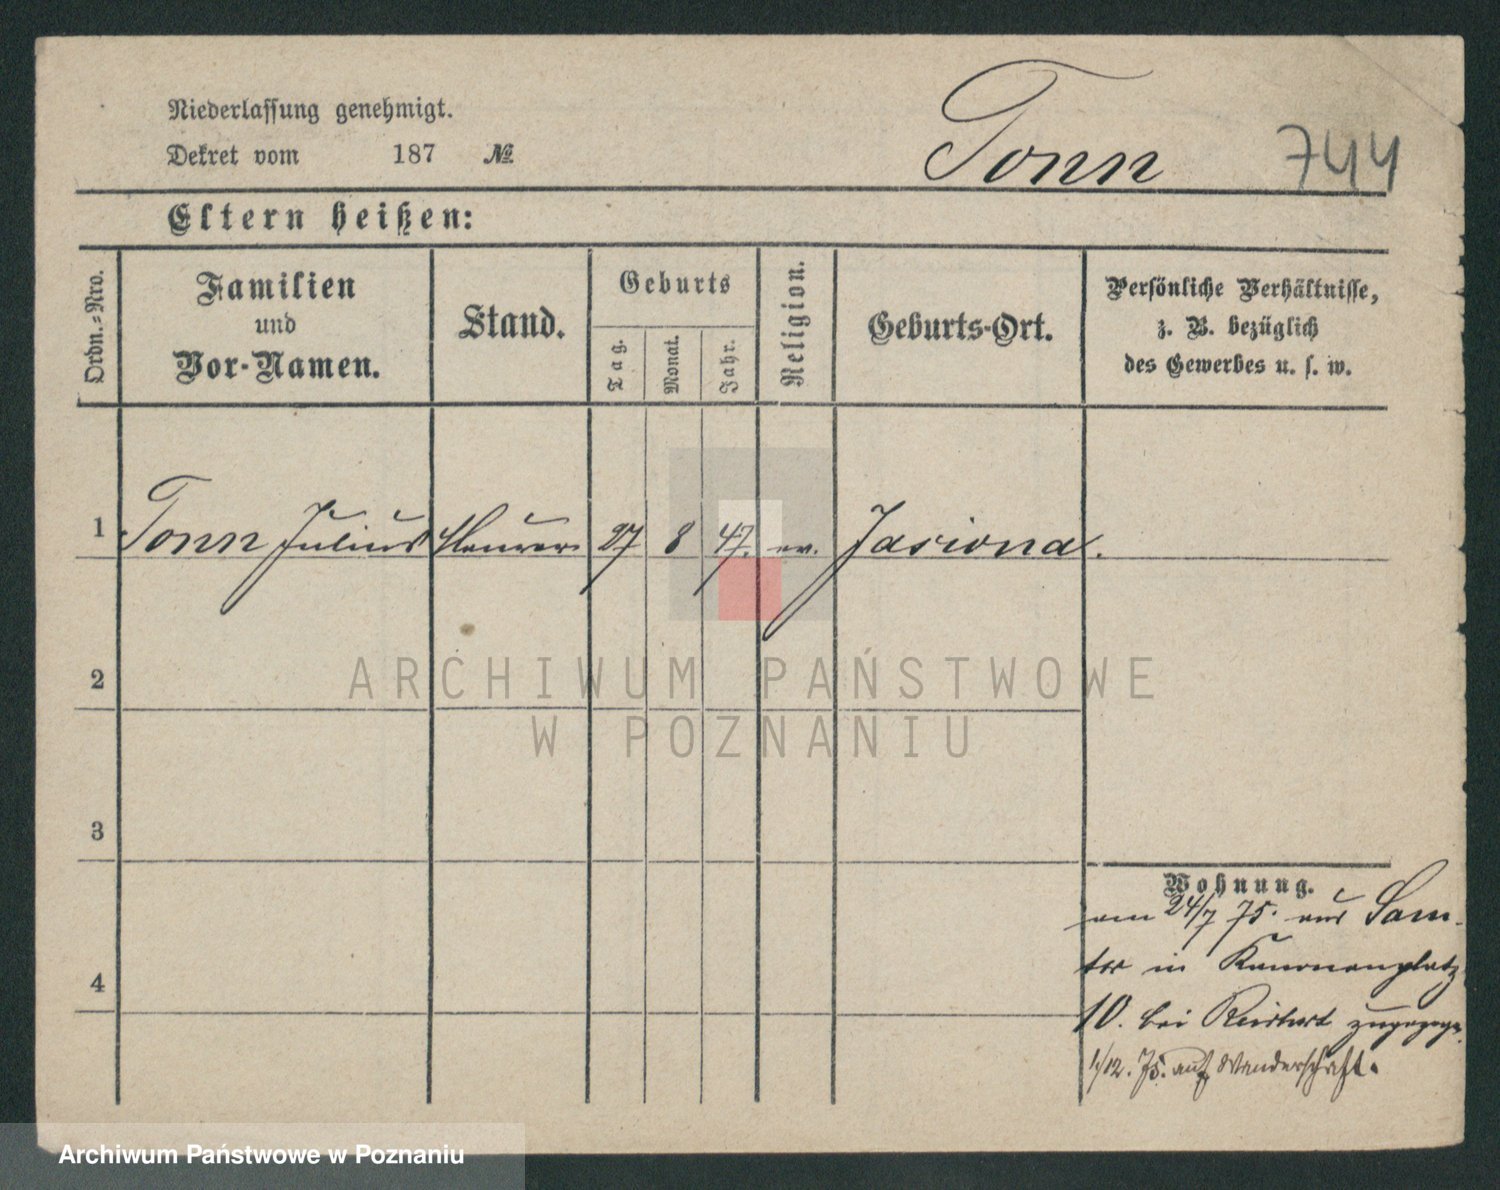 Niederlassung genehmigt.
Dekret vom 187 №
Tonn 744
Eltern heißen:
Ordn.-Nro.
Familien
und
Vor-Namen.
Stand.
Geburts
Tag.
Monat.
Jahr.
Religion.
Geburts-Ort.
Persönliche Verhältnisse,
z. B. bezüglich
des Gewerbes u. s. w.
1 Tonn Julius Maurer 27 8 47. ev. Jasiona.
2
ARCHIWUM PAŃSTWOWE
W POZNANIU
3
Wohnung.
am 24/7 75. aus Sam-
ter in Kanonenplatz
4
10. bei zugezogen.
1/12. 75. auf Wanderschaft.
Archiwum Państwowe w Poznaniu